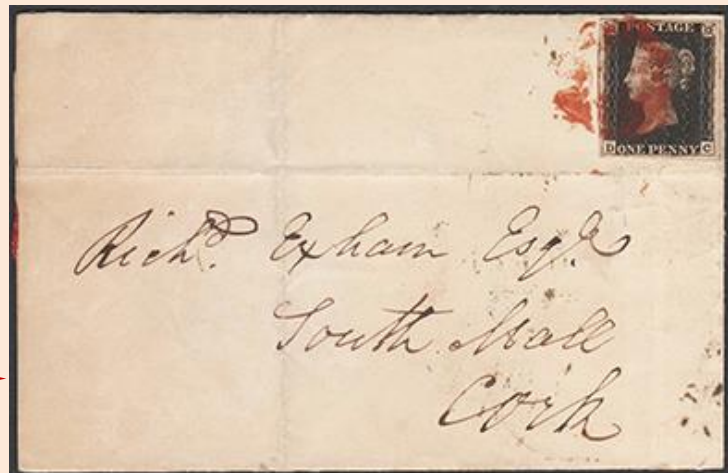 POSTAGE
D ONE PENNY C
Richd. Exham Esqr.
South Mall
Cork